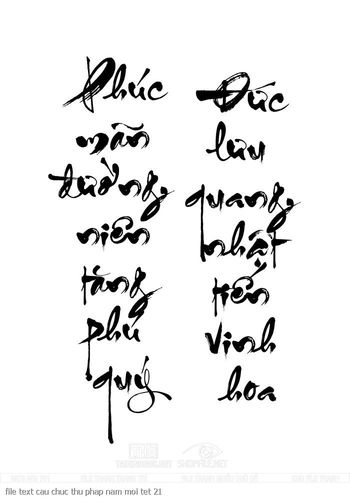 Phúc
mãn
đường,
niên
tăng
phú
quý
Đức
lưu
quang,
nhật
tiến
vinh
hoa
SHOPFILE.NET
file text cau chuc thu phap nam moi tet 21